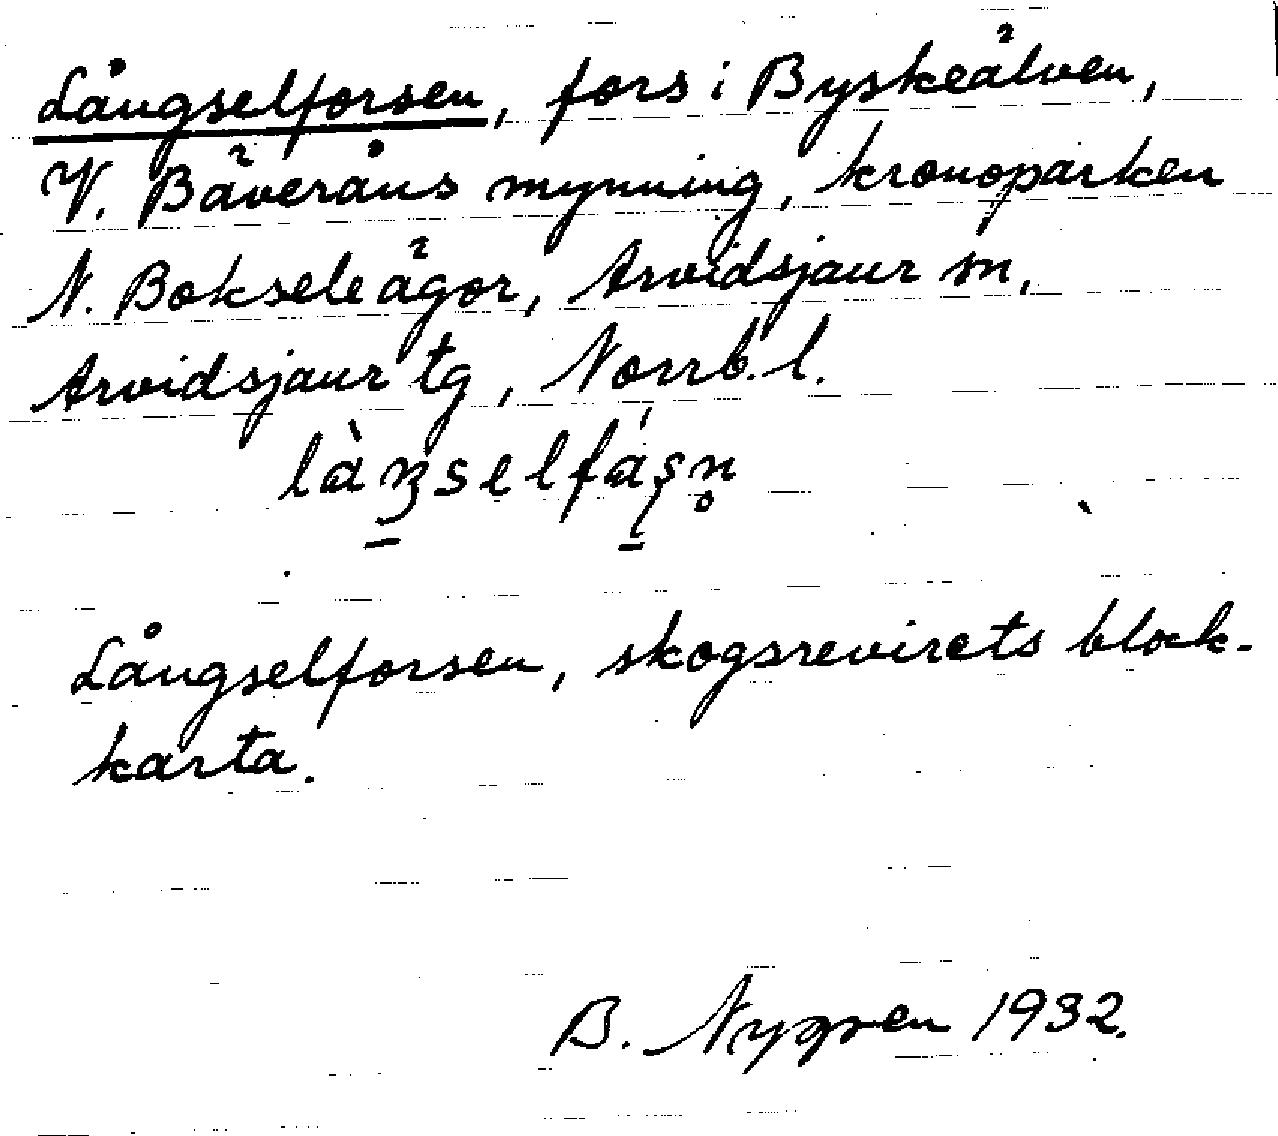 Långselforsen, fors i Byskeälven,
V. Bäveråns mynning, kronoparken
N. Bokseleägor, Arvidsjaur sn,
Arvidsjaur tg, Norrb. l.
Långselforsen, skogsrevirets block-
karta.
B. Nygren 1932.